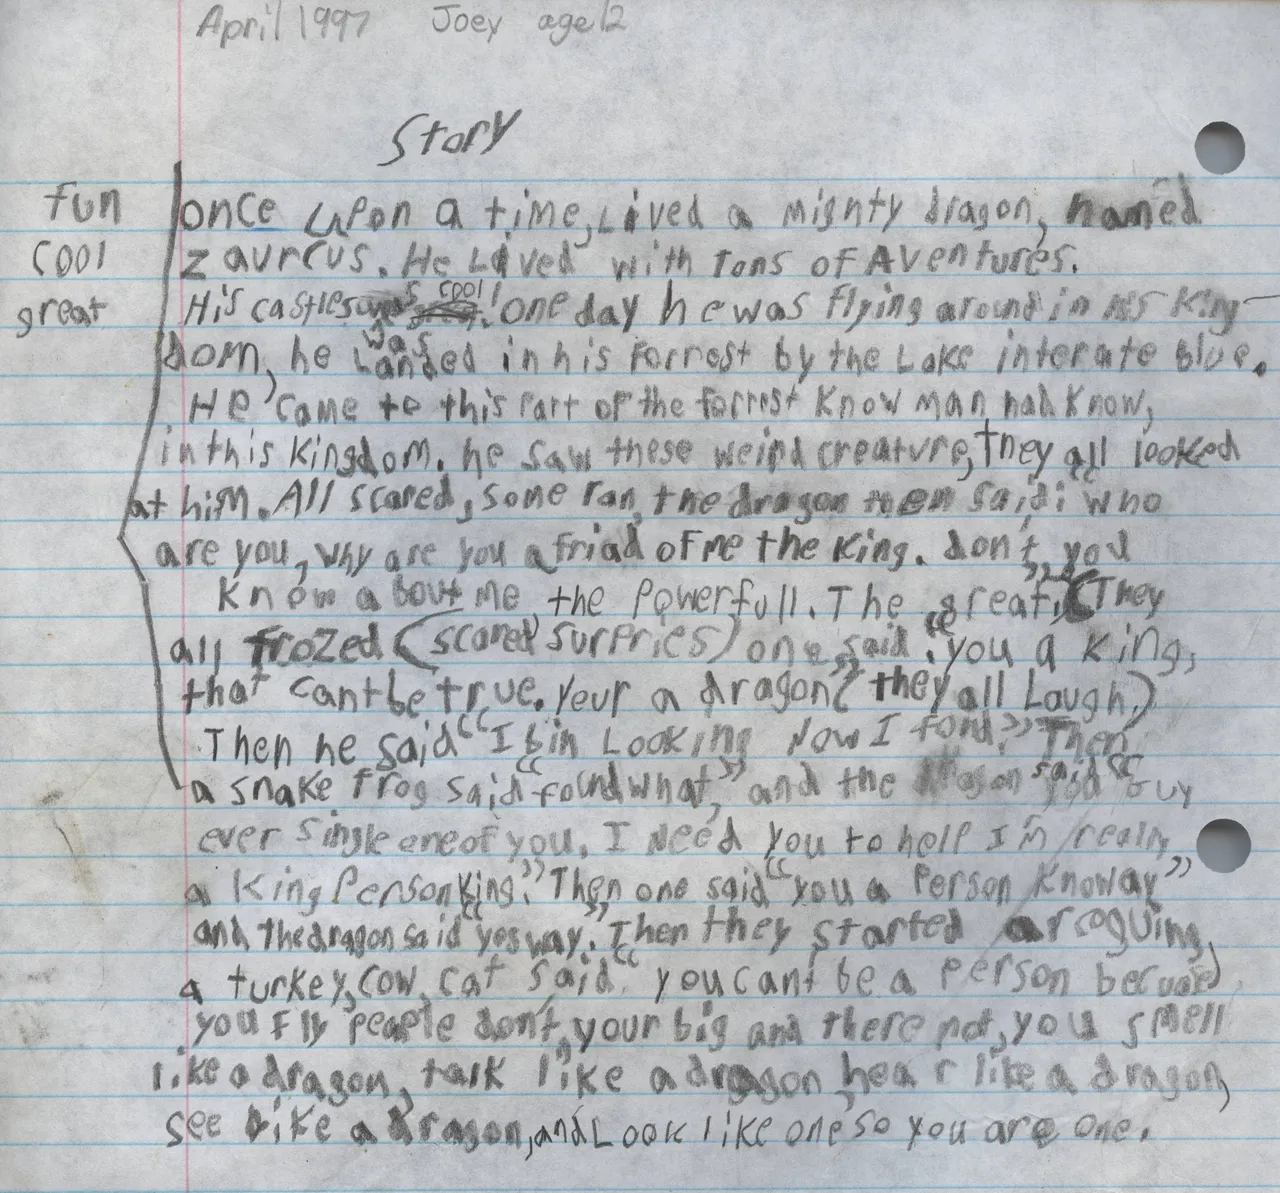 April 1997 Joey age 12
Story
fun
cool
great
once upon a time, Lived a mighty dragon, named
zaurcus. He Lived with Tons of Aventures.
His castles was cool! one day he was flying around in his King-
dom, he was Landed in his Forrest by the Lake interate blue.
He came to this part of the forrest Know man had Know,
in this Kingdom. he saw these weird creature, they all looked
at him. All scared, some ran, the dragon then said: "who
are you, why are you afriad of me the King. don't you
Know about me, the Powerfull. The great." (They
all frozed (scared surpries) one said, "you a King,
that cant be true. Your a dragon" (they all Laugh.)
Then he said "I bin Looking Now I fond." Then
a snake frog said "found what," and the dragon said "you Guy
ever single one of you. I Need you to help I'm really
a King Person King." Then one said "you a Person Knoway"
and the dragon said "yes way." Then they started arcoguing,
a turkey, cow, cat said, "you cant be a Person becuase
you Fly people don't, your big and there not, you smell
like a dragon, talk like a dragon, hear like a dragon,
see Like a dragon, and Look like one so you are one.